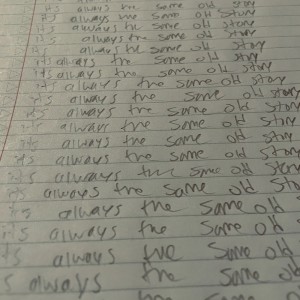 it's always the same old story
it's always the same old story
it's always the same old story
always the same old story
always the same old story
it's always the same old story
it's always the same old story
it's always the same old story
it's always the same old story
it's always the same old story
it's always the same old story
it's always the same old story
it's always the same old story
it's always the same old
it's always the same old
it's always the same old
's always the same old
the same